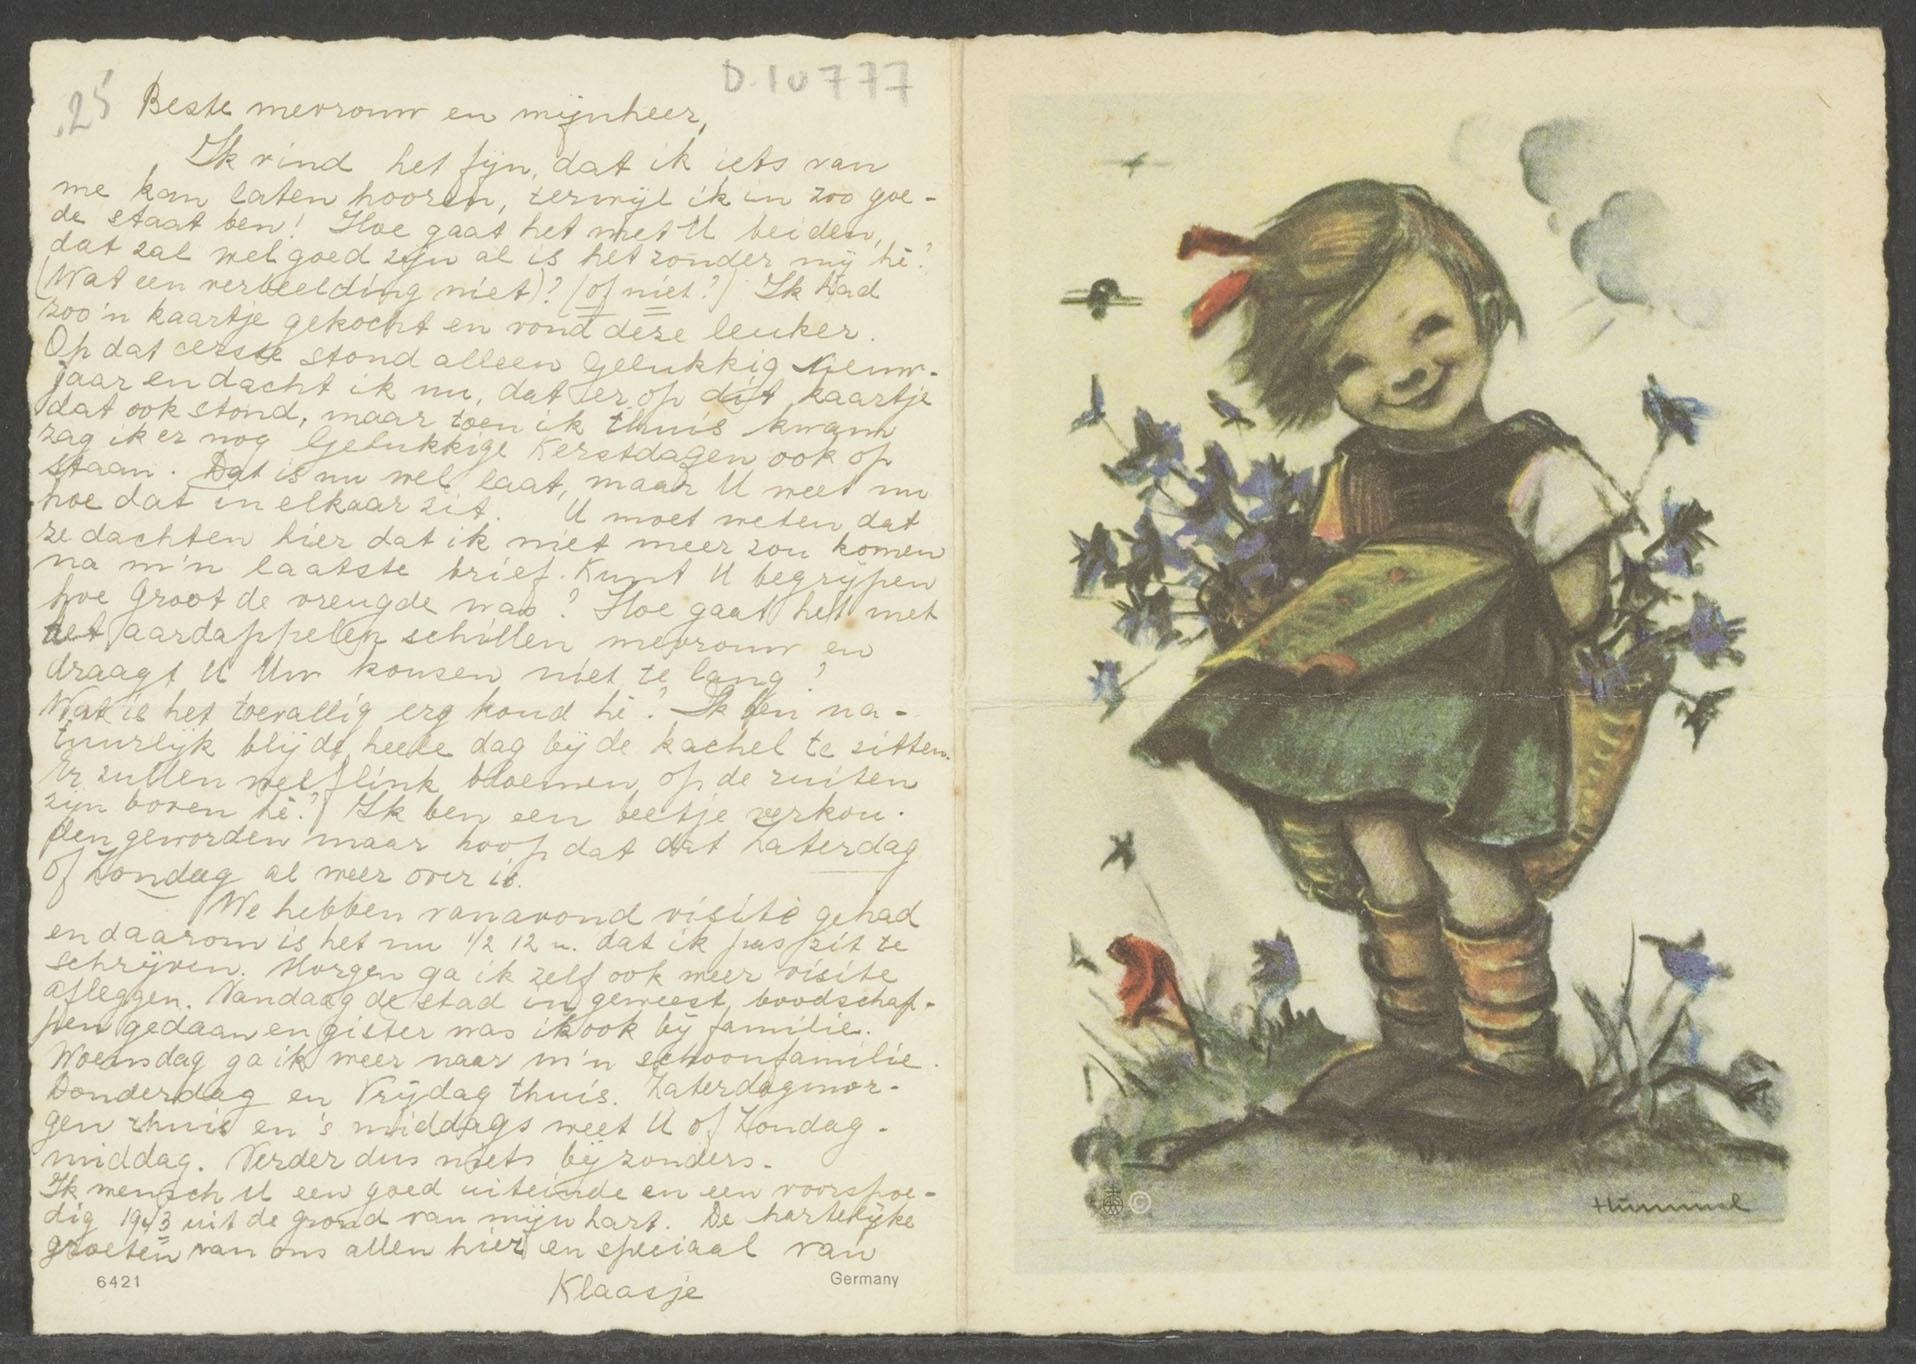 D.10777
25
Beste mevrouw en mijnheer,
Ik vind het fijn, dat ik iets van
me kan laten hooren, terwijl ik in zoo goe-
de staat ben! Hoe gaat het met U beiden,
dat zal wel goed zijn al is het zonder mij hè?
(Wat een verbeelding niet)? (of niet?) Ik had
zoo'n kaartje gekocht en vond deze leuker.
Op dat eerste stond alleen Gelukkig Nieuw-
jaar en dacht ik nu, dat er op dit kaartje
dat ook stond, maar toen ik thuis kwam
zag ik er nog Gelukkige Kerstdagen ook op
staan. Dat is nu wel laat, maar U weet nu
hoe dat in elkaar zit. U moet weten dat
ze dachten hier dat ik niet meer zou komen
na m'n laatste brief. Kunt U begrijpen
hoe groot de vreugde was? Hoe gaat het met
het aardappelen schillen mevrouw en
draagt U Uw kousen niet te lang?
Wat is het toevallig erg koud hè? Ik ben na-
tuurlijk blij de heele dag bij de kachel te zitten.
Er zullen wel flink bloemen op de ruiten
zijn boven hè? Ik ben een beetje verkou-
den geworden maar hoop dat dat Zaterdag
of Zondag al weer over is.
We hebben vanavond visite gehad
en daarom is het nu 1/2 12 u. dat ik pas zit te
schrijven. Morgen ga ik zelf ook weer visite
afleggen. Vandaag de stad in geweest, boodschap-
pen gedaan en gister was ik ook bij familie.
Woensdag ga ik weer naar m'n schoonfamilie.
Donderdag en Vrijdag thuis. Zaterdagmor-
gen thuis en 's middags weet U of Zondag-
middag. Verder dus niets bijzonders.
Ik wensch U een goed uiteinde en een voorspoe-
dig 1943 uit de grond van mijn hart. De hartelijke
groeten van ons allen hier en speciaal van
Klaasje
6421
Germany
©
Hummel